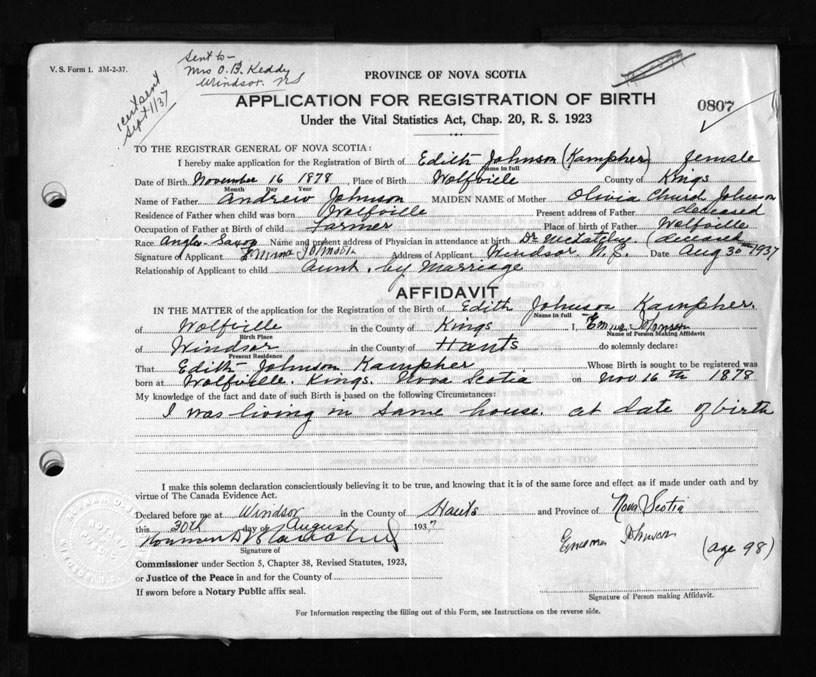 V. S. Form 1. 3M-2-37.
Sent to-
Mrs O. B. Keddy
Windsor. NS
1 cert sent
Sept 1/37
PROVINCE OF NOVA SCOTIA
APPLICATION FOR REGISTRATION OF BIRTH
0807
Under the Vital Statistics Act, Chap. 20, R. S. 1923
TO THE REGISTRAR GENERAL OF NOVA SCOTIA:
I hereby make application for the Registration of Birth of Edith Johnson (Kampher) female
Name in full
Date of Birth November 16 1878 Place of Birth Wolfville County of Kings
Month Day Year
Name of Father Andrew Johnson MAIDEN NAME of Mother Olivia Church Johnson
Residence of Father when child was born Wolfville Present address of Father deceased
Occupation of Father at Birth of child Farmer Place of birth of Father Wolfville
Race Anglo-Saxon Name and present address of Physician in attendance at birth Dr (deceased
Signature of Applicant Johnson Address of Applicant Windsor N.S. Date Aug 30th 1937
Relationship of Applicant to child Aunt. by Marriage
AFFIDAVIT
IN THE MATTER of the application for the Registration of the Birth of Edith Johnson Kampher.
Name in full
of Wolfville in the County of Kings I, Johnson
Birth Place Name of Person Making Affidavit
of Windsor in the County of Hants do solemnly declare:
Present Residence
That Edith Johnson Kampher Whose Birth is sought to be registered was
born at Wolfville. Kings. Nova Scotia on Nov 16th 1878
My knowledge of the fact and date of such Birth is based on the following Circumstances:
I was living in same house. at date of birth
I make this solemn declaration conscientiously believing it to be true, and knowing that it is of the same force and effect as if made under oath and by
virtue of The Canada Evidence Act.
Declared before me at Windsor in the County of Hants and Province of Nova Scotia
this 30th day of August 1937
Johnson
(age 98)
Signature of
Commissioner under Section 5, Chapter 38, Revised Statutes, 1923,
or Justice of the Peace in and for the County of
If sworn before a Notary Public affix seal.
Signature of Person making Affidavit.
For Information respecting the filling out of this Form, see Instructions on the reverse side.